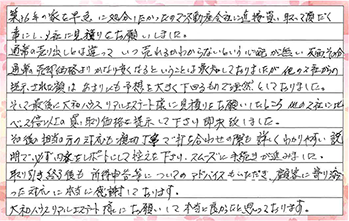 築16年の家を早急に処分したかったので不動産会社に直接買い取って頂く
事にし、6社に見積りをお願いしました。
通常の売り出しとは違って、いつ売れるかわからないという心配が無い反面その分
通常売却価格よりかなり安くなるということは承知しておりましたが、他の5社からの
提示された額はあまりにも予想を大きく下回るもので唖然としておりました。
そして最後に大和ハウスリアルエステート様に見積りをお願いしたところ他の5社に比
べ2倍以上の買い取り価格を提示して下さり即決致しました。
その後担当の方の対応も親切丁寧で打ち合わせの際も詳しくわかりやすい説
明で、必ず内容をレポートにして控えを下さり、スムーズに手続きが進みました。
取り引き終了後も所得申告等についてのアドバイスもいただき、顧客に寄り添
った対応に本当に感謝しております。
大和ハウスリアルエステート様にお願いして本当に良かったと思っております。